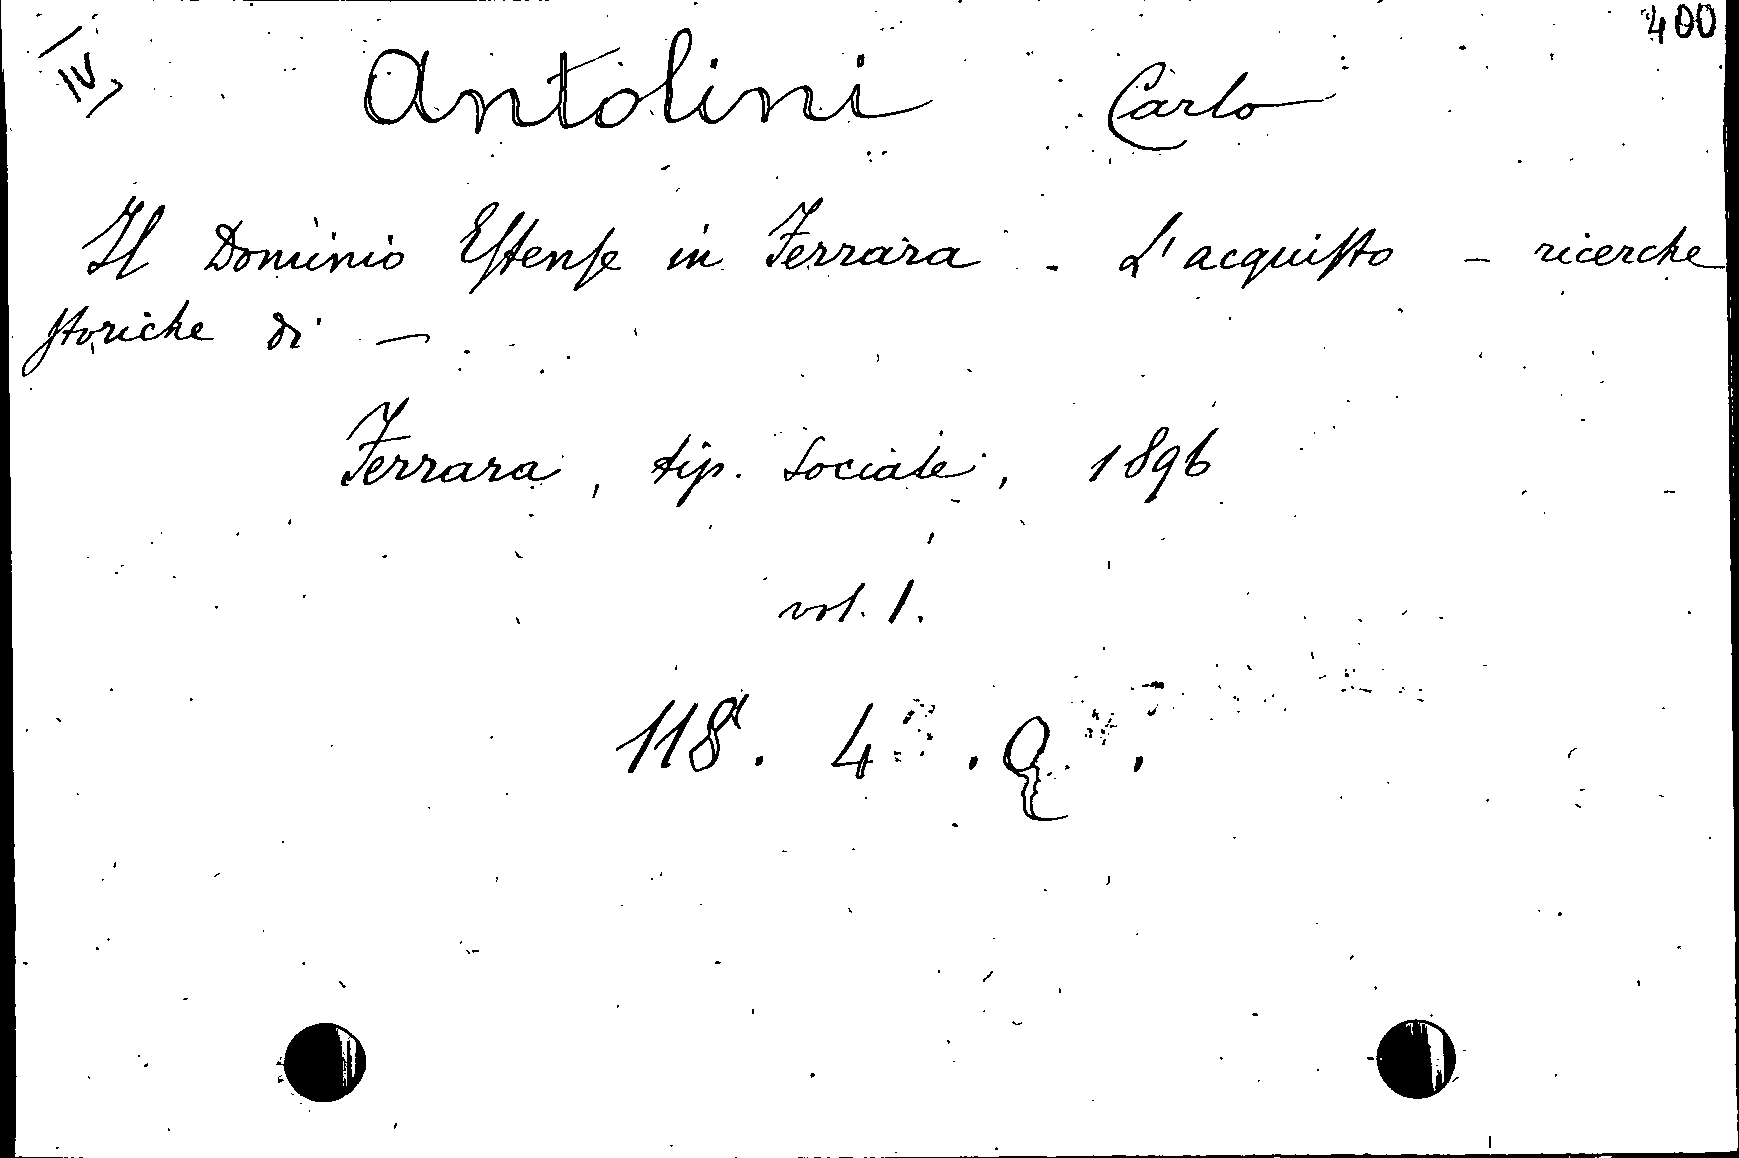 400
IV
Antolini Carlo
Il Dominio Estense in Ferrara - L'acquisto - ricerche
storiche di —
Ferrara, tip. Sociale, 1896
vol. 1.
118. 4 . Q .